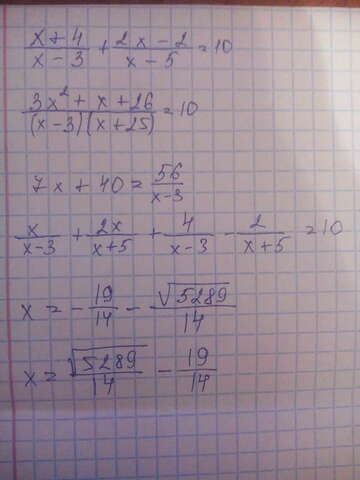 (x + 4)/(x - 3) + (2x - 2)/(x - 5) = 10
(3x² + x + 26)/((x - 3)(x + 25)) = 10
7x + 40 = 56/(x - 3)
x/(x - 3) + 2x/(x + 5) + 4/(x - 3) - 2/(x + 5) = 10
x = - 19/14 - √5289/14
x = √5289/14 - 19/14